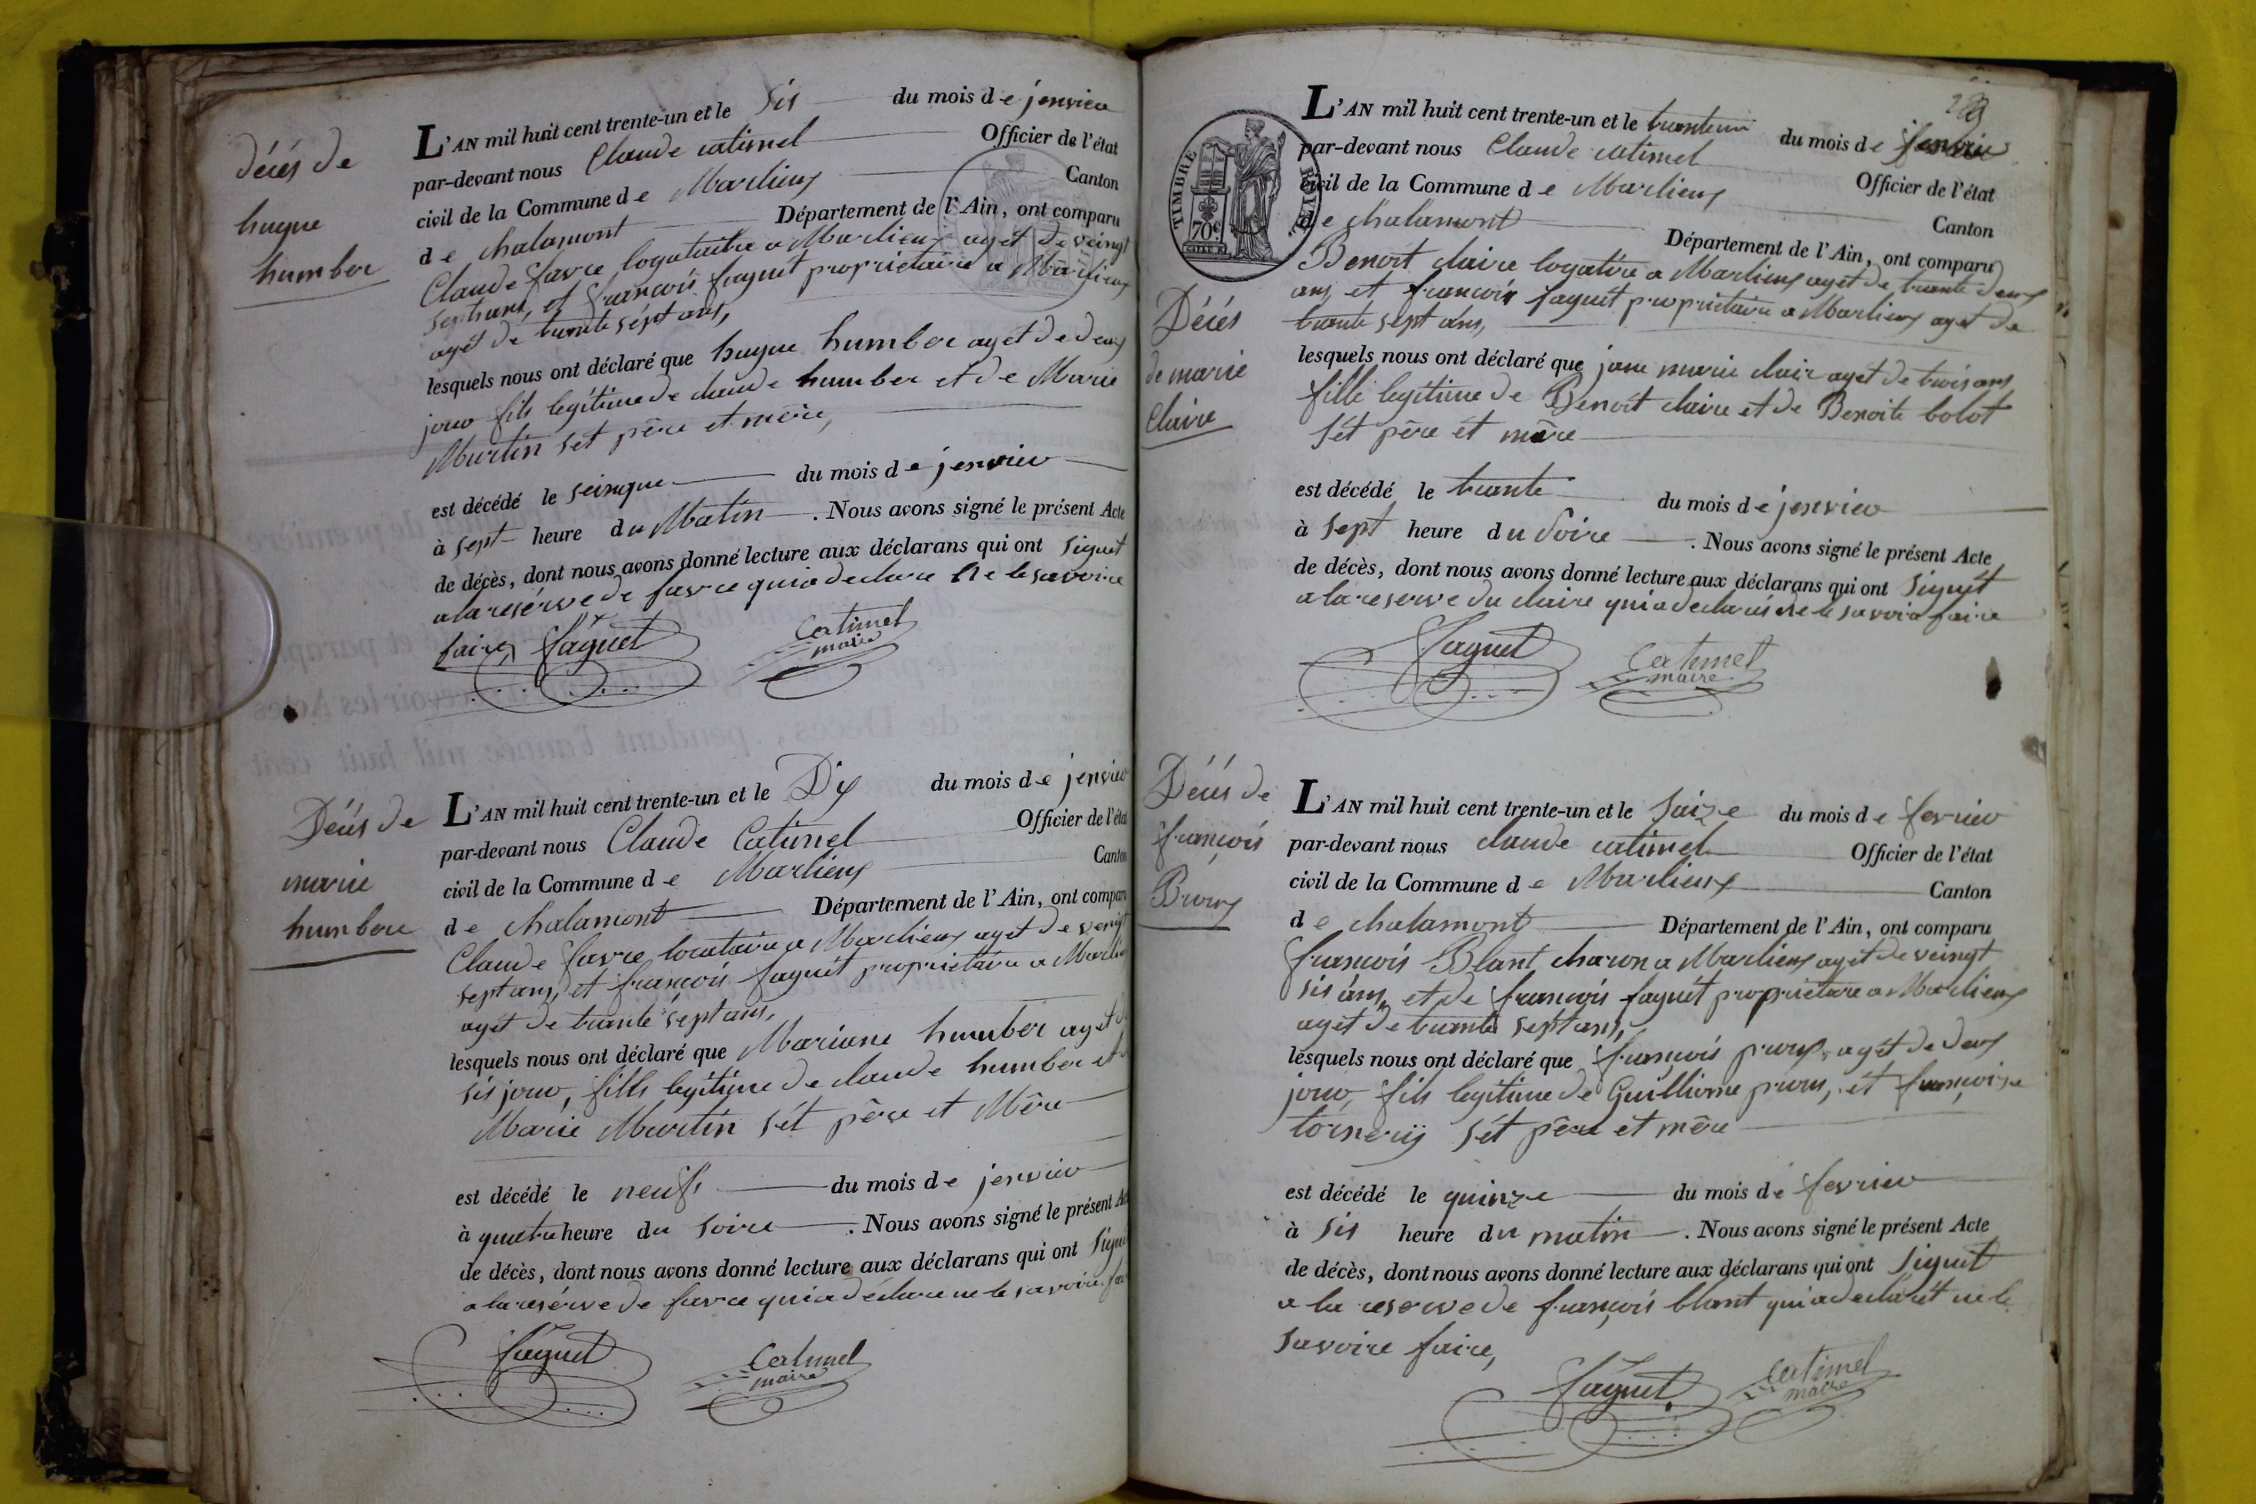 décés de
hugue
humber
L'AN mil huit cent trente-un et le sis du mois de jenvier
par-devant nous Claude catimel Officier de l'état
civil de la Commune de Marlieux Canton
de chalamont Département de l'Ain, ont comparu
Claude favre logataire a Marlieux agét de veingt
sept ans, et françois faguét proprietaire a Marlieux
agét de trante sépt ans,
lesquels nous ont déclaré que hugue humber agét de deux
jour fils legitime de claude humber et de Marie
Martin sét père et mère,
est décédé le seinque du mois de jenvier
à sept heure du Matin. Nous avons signé le présent Acte
de décès, dont nous avons donné lecture aux déclarans qui ont signet
a la resérve de favre qui a declare ne le savoire
faire, faguet Catimel
maire
Décés de
marie
humber
L'AN mil huit cent trente-un et le Dix du mois de jenvier
par-devant nous Claude Catimel Officier de l'état
civil de la Commune de Marlieux Canton
de chalamont Département de l'Ain, ont comparu
Claude favre locataire a Marlieux agét de veingt
sept ans, et françois faguét proprietaire a Marlieux
agét de trante sépt ans,
lesquels nous ont déclaré que Mariane humber agét de
sis jour, fille legitime de claude humber et de
Marie Martin sét père et Mère
est décédé le neuf du mois de jenvier
à quatre heure du soire. Nous avons signé le présent Acte
de décès, dont nous avons donné lecture aux déclarans qui ont signet
a la resérve de favre qui a déclare ne le savoire faire
faguet Catimel
maire
TIMBRE ROYAL
70c
Décés
de marie
Claire
L'AN mil huit cent trente-un et le trante un du mois de jenvier
par-devant nous Claude catimel Officier de l'état
civil de la Commune de Marlieux Canton
de chalamont Département de l'Ain, ont comparu
Benoit claire logatire a Marlieux agét de trante deux
ans, et françois faguét proprietaire a Marlieux agét de
trante sépt ans,
lesquels nous ont déclaré que jane marie clair agét de trois ans
fille legitime de Benoit claire et de Benoite bolot
sét père et mère
est décédé le trante du mois de jenvier
à sept heure du soire. Nous avons signé le présent Acte
de décès, dont nous avons donné lecture aux déclarans qui ont signét
a la reserve du claire qui a declarés ne le savoir faire
faguet Catimel
maire
Décés de
françois
Proux
L'AN mil huit cent trente-un et le saize du mois de fevrier
par-devant nous claude catimel Officier de l'état
civil de la Commune de Marlieux Canton
de chalamont Département de l'Ain, ont comparu
françois Blant charon a Marlieux agét de veingt
sis ans, et de françois faguét proprietare a Marlieux
agét de trante sépt ans,
lesquels nous ont déclaré que françois proux agét de deux
jour, fils legitime de Guilliome proux, et françoise
sét père et mère
est décédé le quinze du mois de fevrier
à sis heure du matin. Nous avons signé le présent Acte
de décès, dont nous avons donné lecture aux déclarans qui ont signét
a la reserve de françois blant qui a declarét ne le
savoire faire,
faguet Catimel
maire